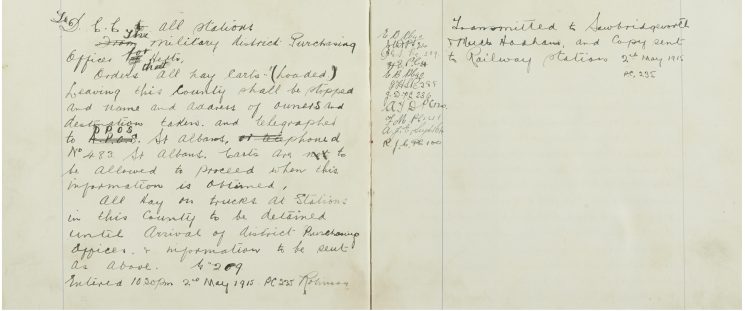 D. C. C. to all Stations
The Military District Purchasing
Officer for Herts,
Orders that all hay carts (Loaded)
Leaving this County shall be stopped
and name and address of owners and
destination taken. and telegraphed
to D.P.O.S. St Albans, or phoned
No 483 St Albans. Carts are to
be allowed to proceed when this
information is obtained,
All hay on trucks at Stations
in this County to be detained
until Arrival of District Purchasing
Officers. & information to be sent
as above.
Entered 10 30pm 2nd May 1915. PC 225 Robinson
Transmitted to Sawbridgeworth
& Much Hadham, and Copy sent
to Railway Stations 2nd May 1915
PC. 225